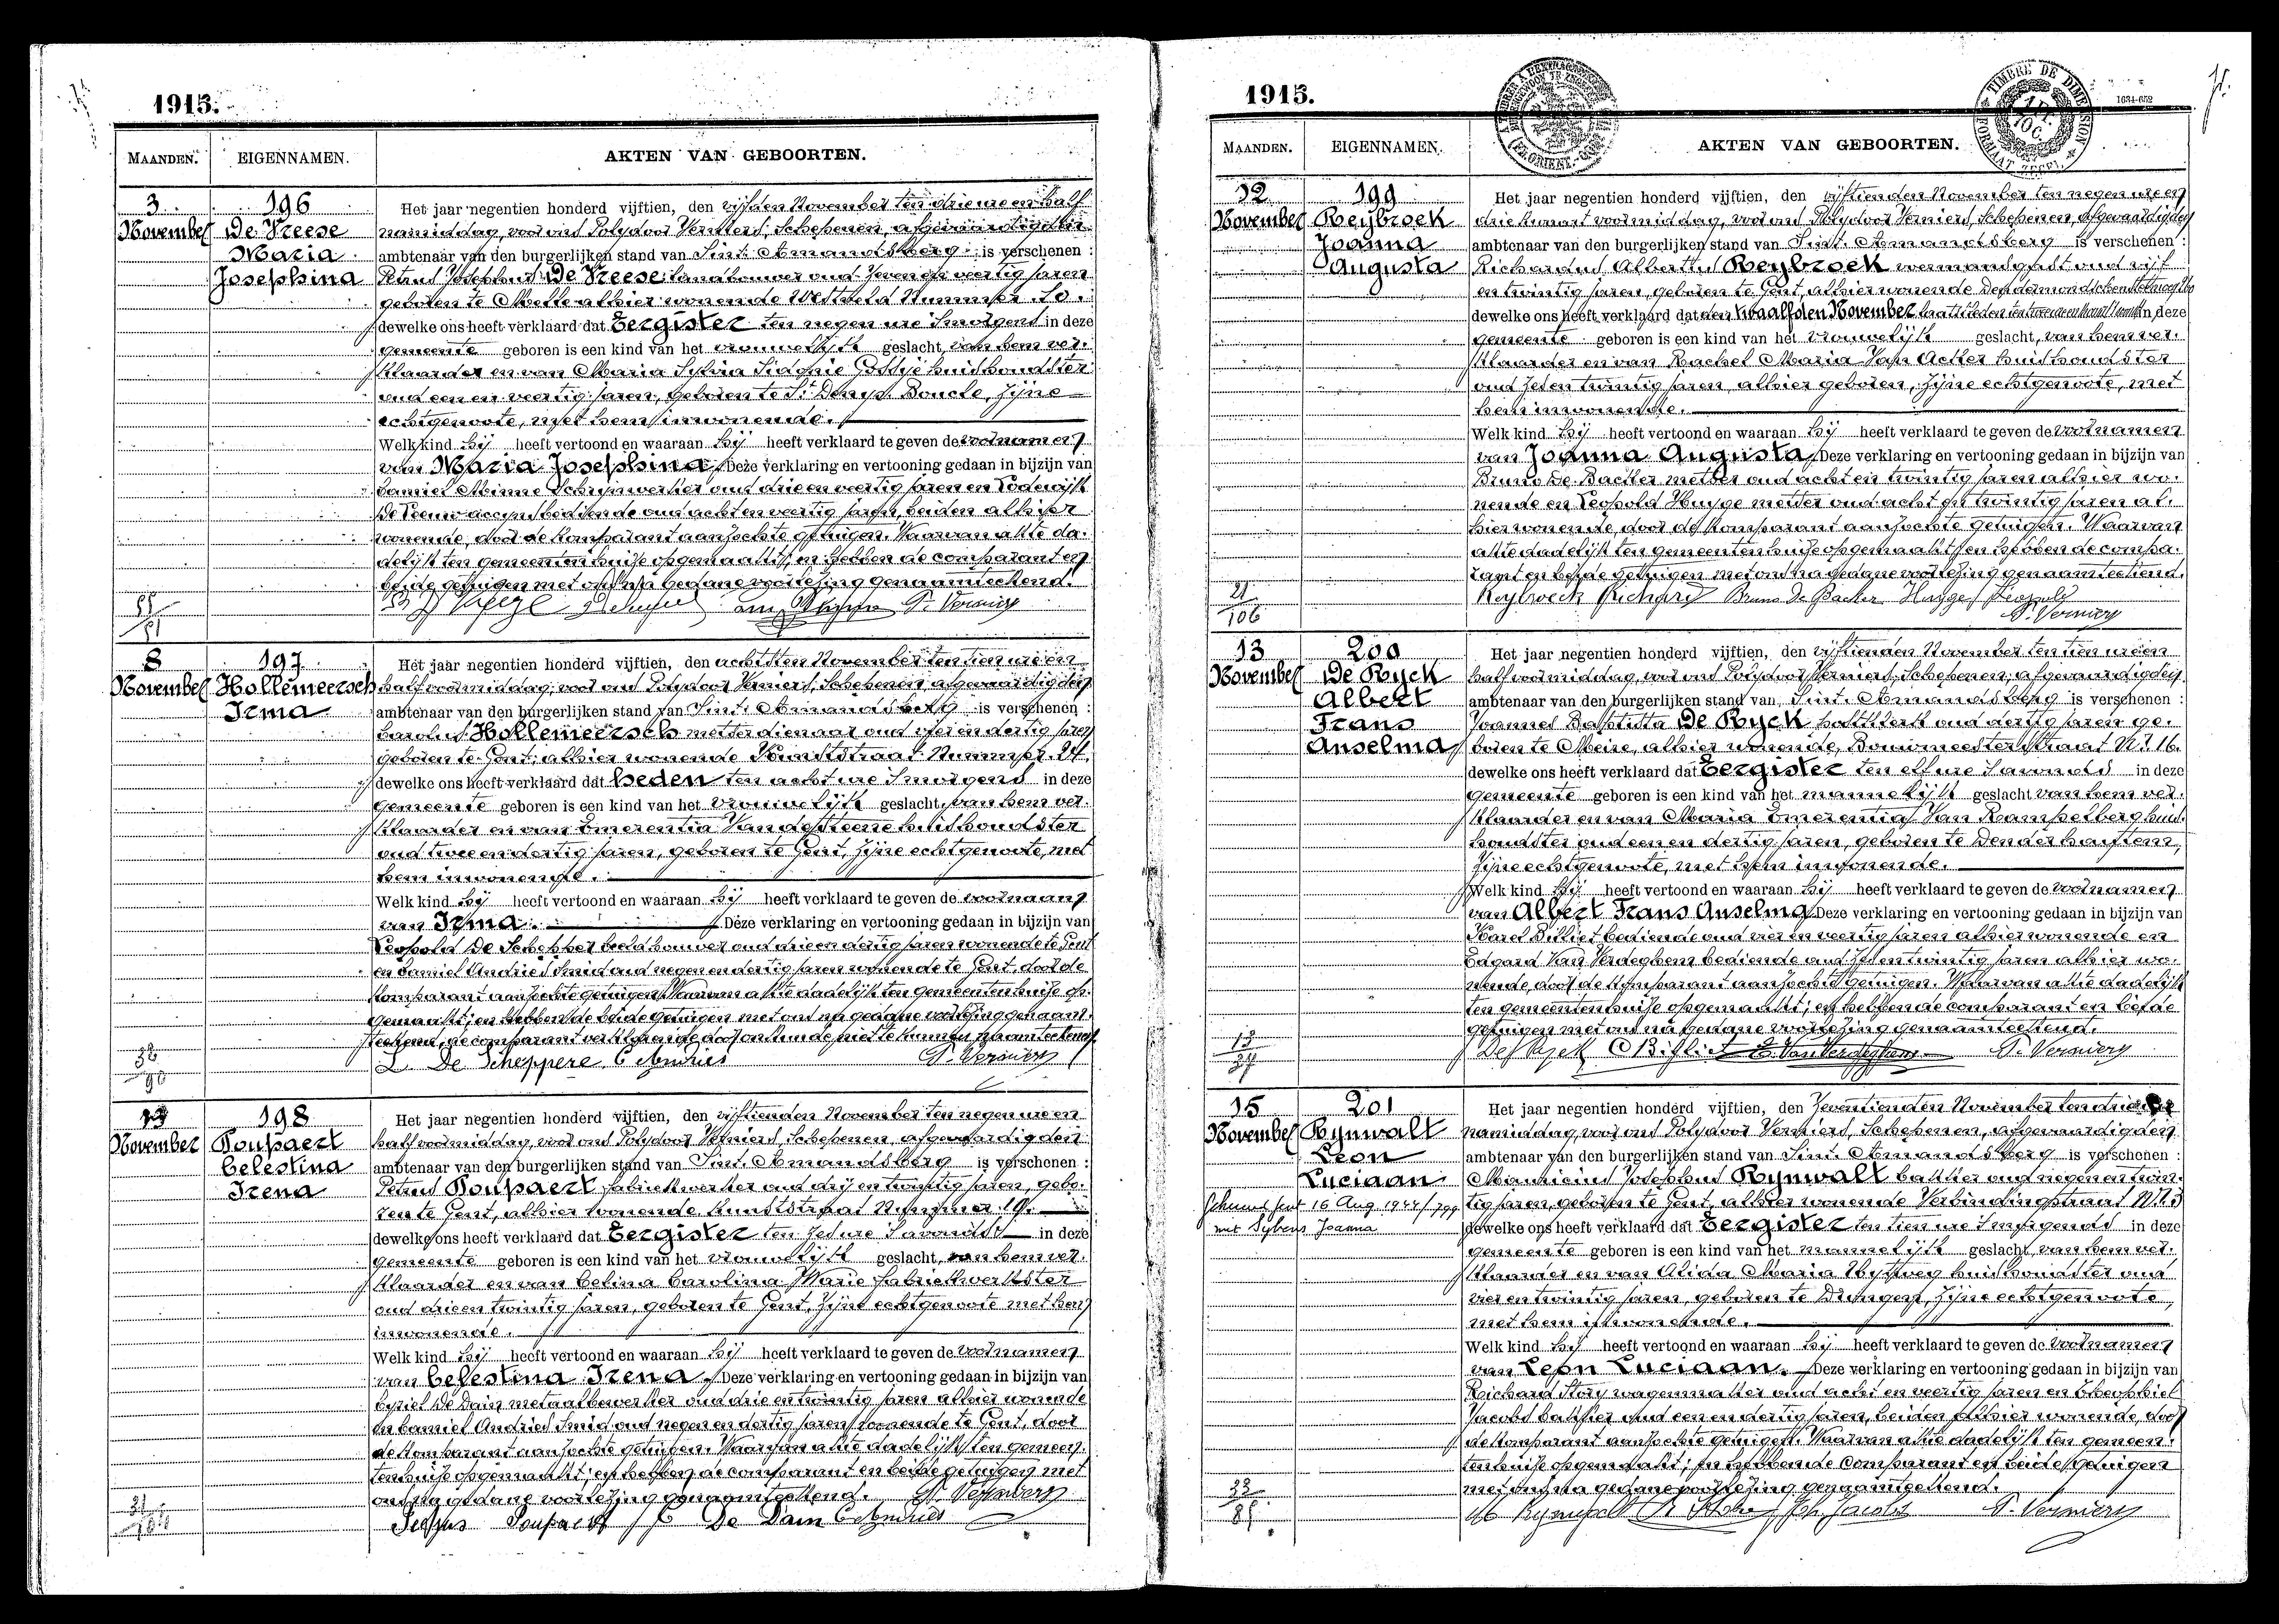 1915.
MAANDEN. EIGENNAMEN. AKTEN VAN GEBOORTEN.
3 November
196
De Vreese
Maria
Josephina
Het jaar negentien honderd vijftien, den vijfden November ten drie ure en half
namiddag, voor ons Polydoor Verniers, Schepenen, afgevaardigden
ambtenaar van den burgerlijken stand van Sint-Amandsberg is verschenen :
Petrus Josephus De Vreese landbouwer oud zeven en veertig jaren
geboren te Melle alhier wonende Westveld Nummer 10.
dewelke ons heeft verklaard dat Eergister ten negen ure 's morgens in deze
gemeente geboren is een kind van het vrouwelijk geslacht, van hem ver-
klaarder en van Maria Sylvia Gossije huishoudster
oud een en veertig jaren, geboren te St Denys Boucle, zijne
echtgenoote, met hem inwonende.
Welk kind hij heeft vertoond en waaraan hij heeft verklaard te geven de voornamen
van Maria Josephina Deze verklaring en vertooning gedaan in bijzijn van
Camiel Minne Schrijnwerker oud drie en veertig jaren en Lodewijk
De Leeuw accijnsbediende oud acht en veertig jaren, beiden alhier
wonende, door de komparant aanzochte getuigen. Waarvan akte da-
delijk ten gemeentenhuize opgemaakt, en hebben de comparant en
beide getuigen met ons na gedane voorlezing genaamteekend.
P. Verniers
8 November
197
Hollemeersch
Irma
Het jaar negentien honderd vijftien, den achtsten November ten tien ure en
half voormiddag, voor ons Polydoor Verniers, Schepenen, afgevaardigden
ambtenaar van den burgerlijken stand van Sint-Amandsberg is verschenen :
Carolus Hollemeersch metserdienaar oud vijf en dertig jaren
geboren te Gent, alhier wonende Kunststraat Nummer 24.
dewelke ons heeft verklaard dat heden ten acht ure 's morgens in deze
gemeente geboren is een kind van het vrouwelijk geslacht, van hem ver-
klaarder en van Emerentia Van de Steene huishoudster
oud twee en dertig jaren, geboren te Gent, zijne echtgenoote, met
hem inwonende.
Welk kind hij heeft vertoond en waaraan hij heeft verklaard te geven de voornaam
van Irma. Deze verklaring en vertooning gedaan in bijzijn van
Leopold De Schepper beeldhouwer oud drie en dertig jaren wonende te Gent
en Camiel Andries Smid oud negen en dertig jaren wonende te Gent, door de
komparant aanzochte getuigen. Waarvan akte dadelijk ten gemeentenhuize op-
gemaakt; en hebben de beide getuigen met ons na gedane voorlezing genaam-
teekend, de comparant verklarende door onkunde niet te kunnen naamteekenen.
L. De Scheppere C Andries P. Verniers
32
90
13 November
198
Poupaert
Celestina
Irena
Het jaar negentien honderd vijftien, den vijftienden November ten negen ure en
half voormiddag, voor ons Polydoor Verniers, Schepenen, afgevaardigden
ambtenaar van den burgerlijken stand van Sint-Amandsberg is verschenen :
Petrus Poupaert fabriekwerker oud drij en twintig jaren, gebo-
ren te Gent, alhier wonende Kunststraat Nummer 19.
dewelke ons heeft verklaard dat Eergister ten zes ure 's avonds in deze
gemeente geboren is een kind van het vrouwelijk geslacht, van hem ver-
klaarder en van Celina Carolina Marie fabriekwerkster
oud drie en twintig jaren, geboren te Gent, zijne echtgenoote met hem
inwonende.
Welk kind hij heeft vertoond en waaraan hij heeft verklaard te geven de voornamen
van Celestina Irena Deze verklaring en vertooning gedaan in bijzijn van
Cyriel De Dain metaalbewerker oud drie en twintig jaren alhier wonende
en Camiel Andries Smid oud negen en dertig jaren wonende te Gent, door
de komparant aanzochte getuigen. Waarvan akte dadelijk ten gemeen-
tenhuize opgemaakt; en hebben de comparant en beide getuigen met
ons na gedane voorlezing genaamteekend. P. Verniers
Petrus Poupaert C De Dain C Andries
1915.
TIMBRE DE DIMENSION
1634-652
MAANDEN. EIGENNAMEN. AKTEN VAN GEBOORTEN.
12 November
199
Reybroek
Joanna
Augusta
Het jaar negentien honderd vijftien, den vijftienden November ten negen ure en
drie kwart voormiddag, voor ons Polydoor Verniers, Schepenen, afgevaardigden
ambtenaar van den burgerlijken stand van Sint-Amandsberg is verschenen :
Richardus Albertus Reybroek oud vijf
en twintig jaren, geboren te Gent, alhier wonende Dendermondschensteenweg
dewelke ons heeft verklaard dat den twaalfden November in deze
gemeente geboren is een kind van het vrouwelijk geslacht, van hem ver-
klaarder en van Rachel Maria Van Acker huishoudster
oud zes en twintig jaren, alhier geboren, zijne echtgenoote, met
hem inwonende.
Welk kind hij heeft vertoond en waaraan hij heeft verklaard te geven de voornamen
van Joanna Augusta. Deze verklaring en vertooning gedaan in bijzijn van
Bruno De Backer metser oud acht en twintig jaren alhier wo-
nende en Leopold Huyge metser oud acht en twintig jaren al-
hier wonende, door de komparant aanzochte getuigen. Waarvan
akte dadelijk ten gemeentenhuize opgemaakt, en hebben de compa-
rant en beide getuigen met ons na gedane voorlezing genaamteekend.
Reybroeck Richard Bruno De Backer Huyge Leopold
P. Verniers
21
106
13 November
200
De Ryck
Albert
Frans
Anselma
Het jaar negentien honderd vijftien, den vijftienden November ten tien ure en
half voormiddag, voor ons Polydoor Verniers, Schepenen, afgevaardigden
ambtenaar van den burgerlijken stand van Sint-Amandsberg is verschenen :
Joannes Baptista De Ryck oud dertig jaren ge-
boren te Meire, alhier wonende, Bouwmeestersstraat Nr 16.
dewelke ons heeft verklaard dat Eergister ten elf ure 's avonds in deze
gemeente geboren is een kind van het mannelijk geslacht van hem ver-
klaarder en van Maria Emerentia Van Rampelberg huis-
houdster oud een en dertig jaren, geboren te Denderhautem,
zijne echtgenoote, met hem inwonende.
Welk kind hij heeft vertoond en waaraan hij heeft verklaard te geven de voornamen
van Albert Frans Anselma Deze verklaring en vertooning gedaan in bijzijn van
Karel Billiet bediende oud vier en veertig jaren alhier wonende en
Edgard Van Verdeghem bediende oud zes en twintig jaren alhier wo-
nende, door de komparant aanzochte getuigen. Waarvan akte dadelijk
ten gemeentenhuize opgemaakt; en hebben de comparant en beide
getuigen met ons na gedane voorlezing genaamteekend.
De Ryck C Billiet E. Van Verdeghem P. Verniers
15 November
201
Rynwalt
Leon
Luciaan
Gehuwd Gent 16 Aug 1944/799
met Sybens Joanna
Het jaar negentien honderd vijftien, den zeventienden November ten drie ure
namiddag, voor ons Polydoor Verniers, Schepenen, afgevaardigden
ambtenaar van den burgerlijken stand van Sint-Amandsberg is verschenen :
Mauricius Josephus Rynwalt bakker oud negen en twin-
tig jaren, geboren te Gent, alhier wonende Verbindingstraat Nr 3
dewelke ons heeft verklaard dat Eergister ten tien ure in deze
gemeente geboren is een kind van het mannelijk geslacht, van hem ver-
klaarder en van Alida Maria huishoudster oud
vier en twintig jaren, geboren te Drongen, zijne echtgenoote,
met hem inwonende.
Welk kind hij heeft vertoond en waaraan hij heeft verklaard te geven de voornamen
van Leon Luciaan. Deze verklaring en vertooning gedaan in bijzijn van
Richard Story wagenmaker oud acht en veertig jaren en Theophiel
Jacobs bakker oud een en dertig jaren, beiden alhier wonende, door
de komparant aanzochte getuigen. Waarvan akte dadelijk ten gemeen-
tenhuize opgemaakt; en hebben de comparant en beide getuigen
met ons na gedane voorlezing genaamteekend.
Rynwalt Th. Jacobs P. Verniers